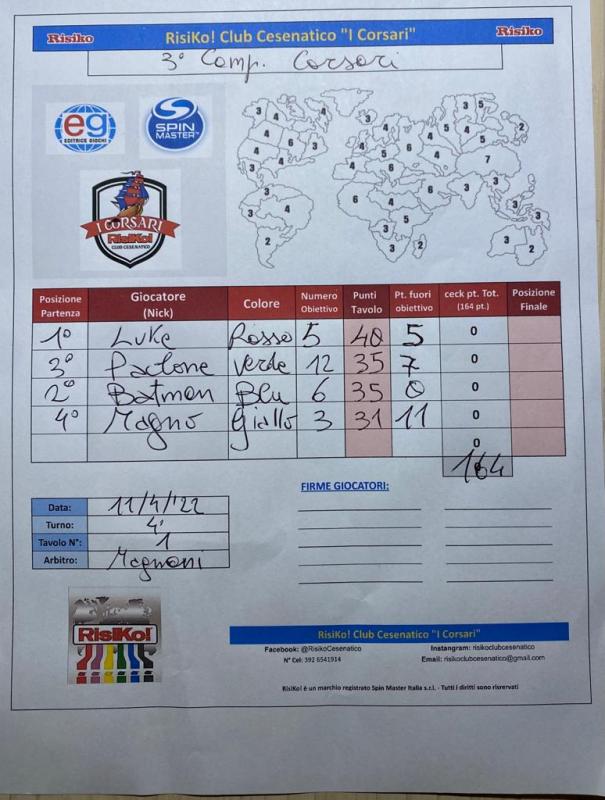 Risiko
RisiKo! Club Cesenatico "I Corsari"
Risiko
3° Comp. Corsari
eg
EDITRICE GIOCHI
SPIN
MASTER™
I CORSARI
RisiKo!
CLUB CESENATICO
3 4 4 3 3 5 2
4 6 3 4 4 6 4 4 5
4 5 6 7
3 4 4 6 3 3
3 4 6 4 5 3 3 2
2 3 2 3 2
Posizione Partenza Giocatore (Nick) Colore Numero Obiettivo Punti Tavolo Pt. fuori obiettivo ceck pt. Tot. (164 pt.) Posizione Finale
1° Luke Rosso 5 40 5 0
3° Paclone Verde 12 35 7 0
2° Batman Blu 6 35 0 0
4° Magno Giallo 3 31 11 0
0
164
FIRME GIOCATORI:
Data: 11/4/'22
Turno: 4°
Tavolo N°: 1
Arbitro: Magnani
RisiKo!
RisiKo! Club Cesenatico "I Corsari"
Facebook: @RisikoCesenatico Instangram: risikoclubcesenatico
N° Cel: 392 6541914 Email: risikoclubcesenatico@gmail.com
RisiKo! è un marchio registrato Spin Master Italia s.r.l. - Tutti i diritti sono risrervati